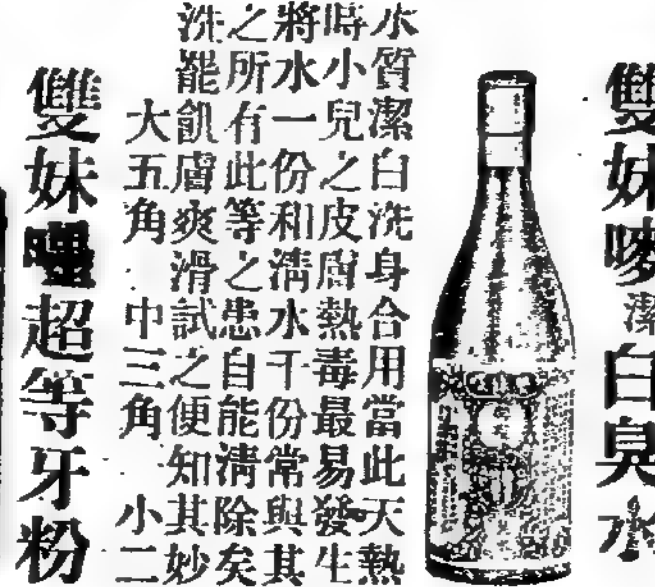 雙妹嘜潔白臭水
水質潔白洗身合用當此天熱
時小兒之皮膚熱毒最易發生
將水一份和清水千份常與其
之所有此等之患自能清除矣
洗罷飢膚爽滑試之便知其妙
大五角　中三角　小二
雙妹嘜超等牙粉